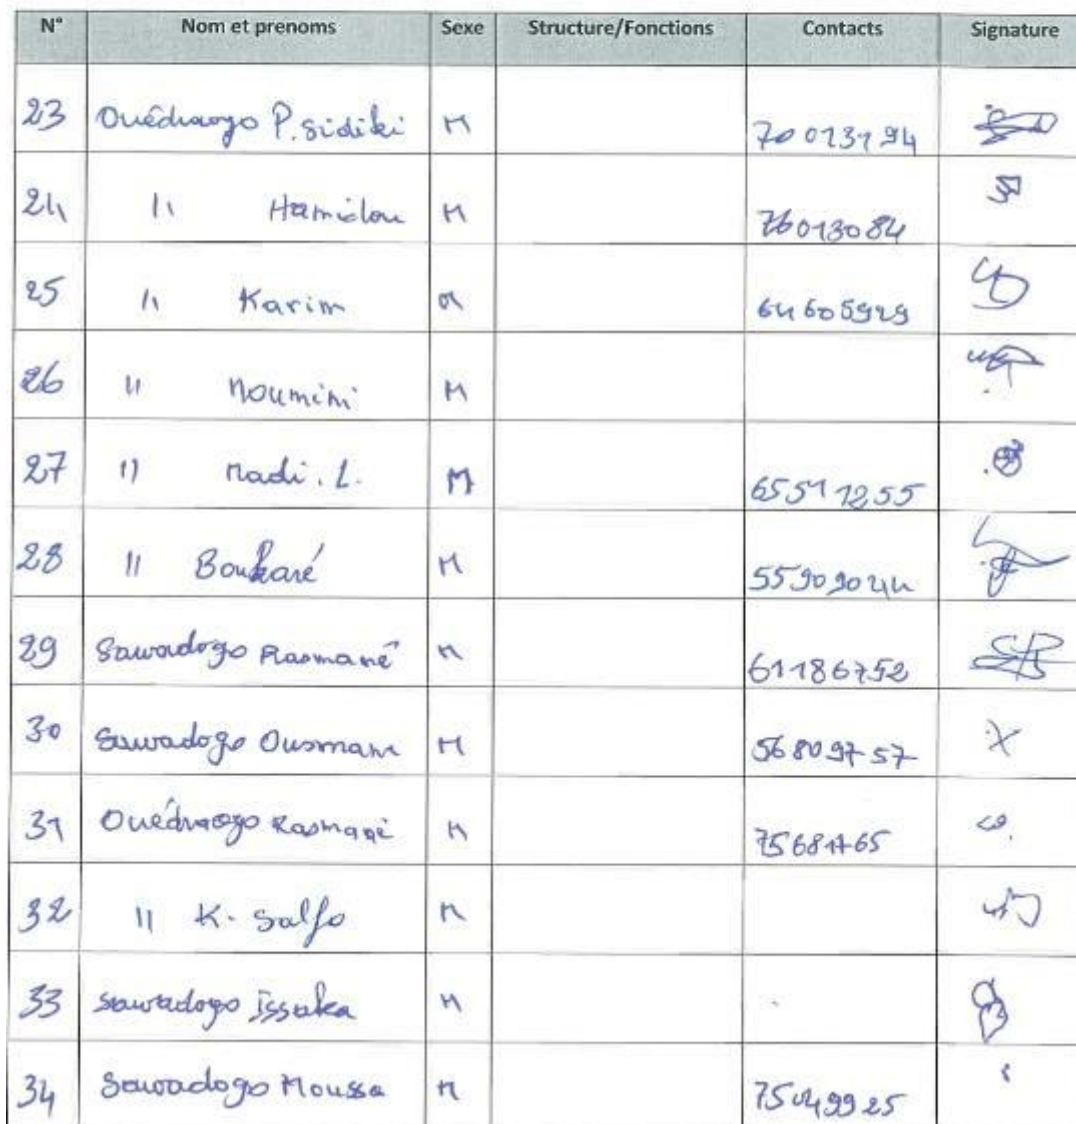 N° Nom et prenoms Sexe Structure/Fonctions Contacts Signature
23 Ouédraogo P. Sidiki M 70013194
24 " Hamidou M 76013084
25 " Karim M 64605929
26 " Moumini M
27 " Madi. L. M 65511255
28 " Boukaré M 55909044
29 Sawadogo Rasmané M 61186752
30 Sawadogo Ousmane M 56809757
31 Ouédraogo Rasmané M 75681765
32 " K. Salfo M
33 Sawadogo Issaka M
34 Sawadogo Moussa M 75049925